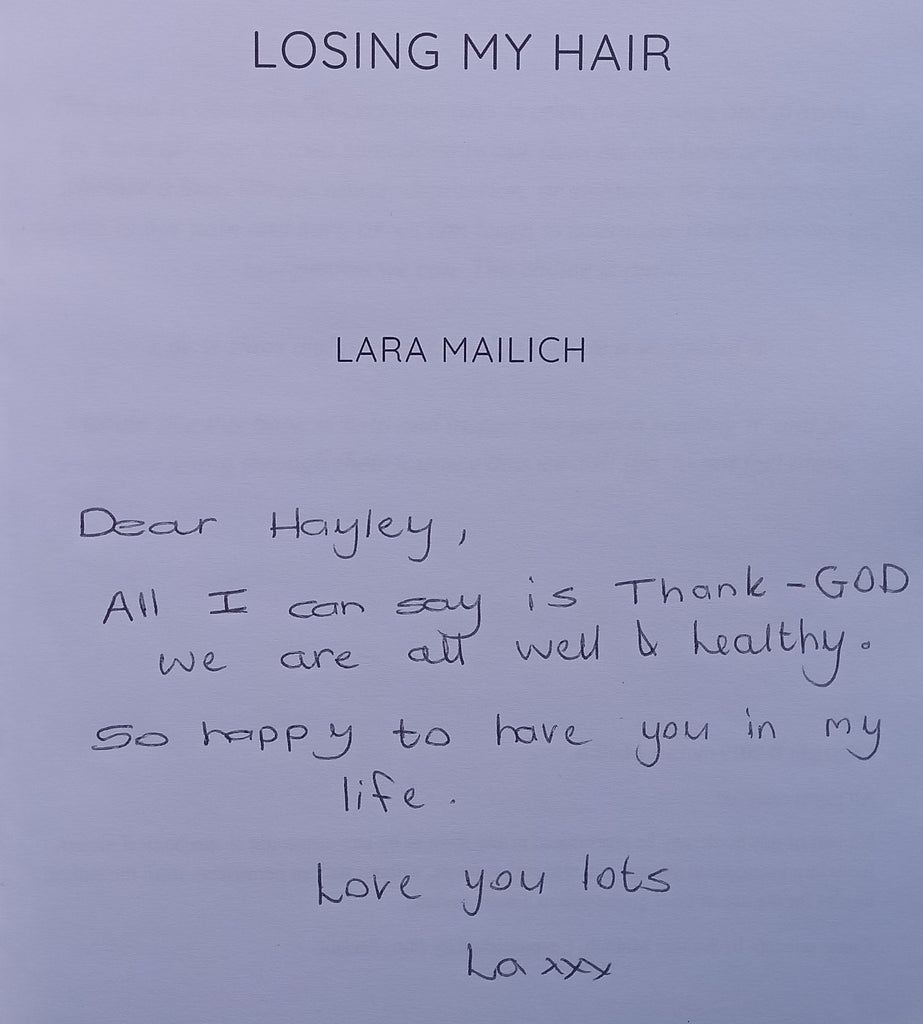 LOSING MY HAIR
LARA MAILICH
Dear Hayley,
All I can say is Thank-GOD
we are all well & healthy.
So happy to have you in my
life.
Love you lots
La xxx